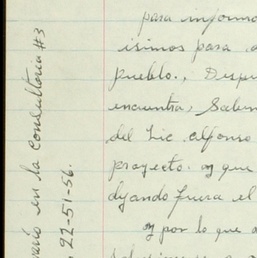 para informa
isimos para
pueblo., Despu
encuentra, Sabem
del Lic. alfonso
proyecto. y que
dyando fuera el
y por lo que
en la Consultoria #3
22-51-56.